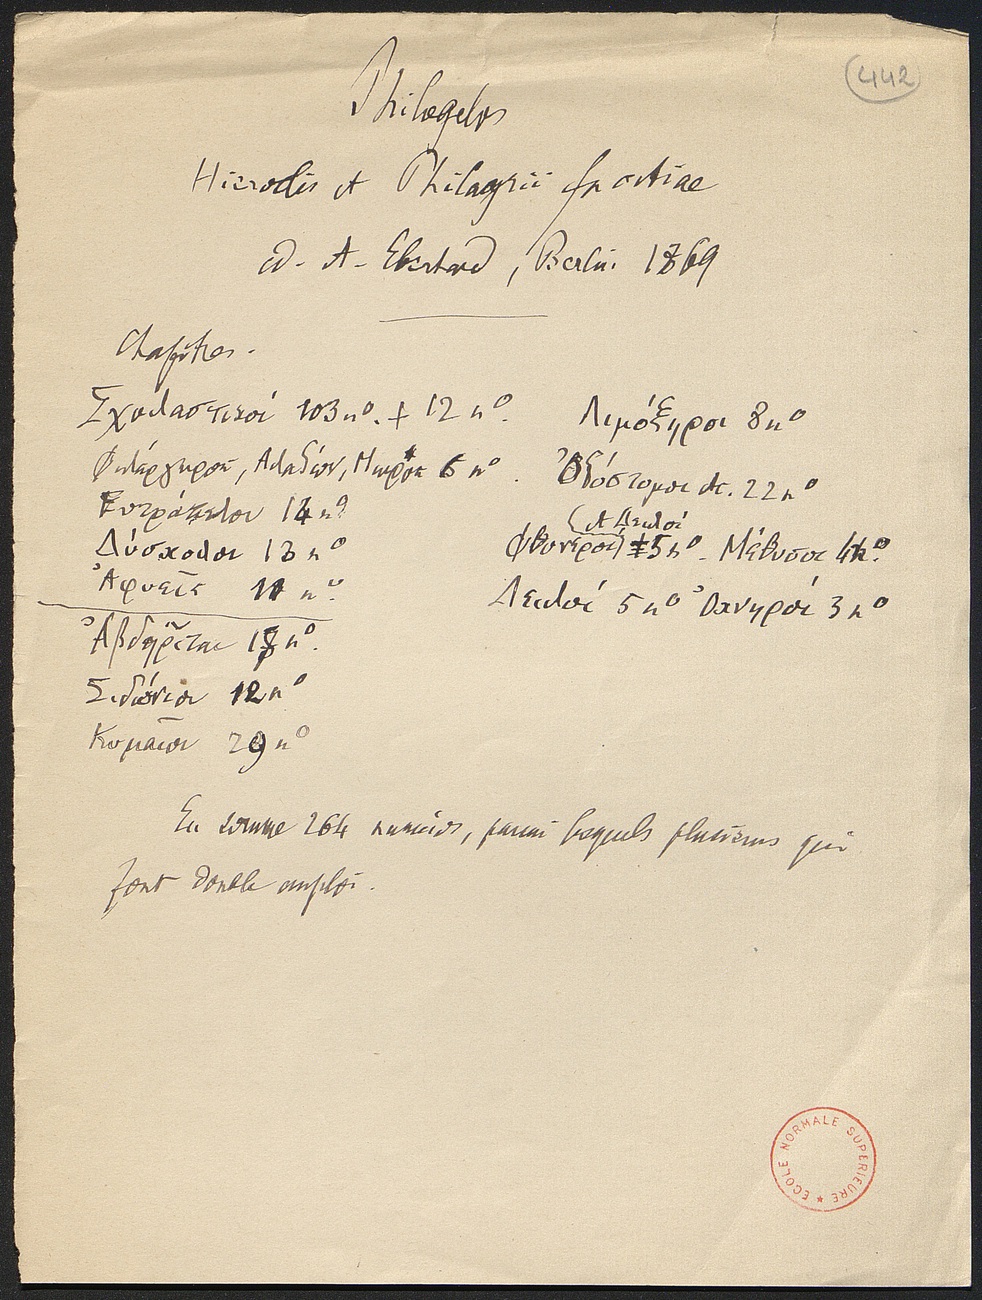 442
Philogelos
Hieroclis et Philagrii facetiae
ed. A. Eberhard, Berlin 1869
Chapitres.
Σχολαστικοί 103 nº. + 12 nº.
Φιλάργυροι, Ἀλαζών, Μωρὸς 6 nº.
Εὐτράπελοι 14 nº
Δύσκολοι 13 nº
Ἀφυεῖς 11 nº.
Ἀβδηρῖται 18 nº.
Σιδώνιοι 12 nº
Κυμαῖοι 29 nº
Λιμόξηροι 8 nº
Ὀζόστομοι etc. 22 nº
(et Δειλοί
Φθονεροί) 5 nº. Μέθυσοι 4 nº.
Δειλοί 5 nº Ὀκνηροί 3 nº
En somme 264 numéros, parmi lesquels plusieurs qui
font double emploi.
ECOLE NORMALE SUPERIEURE